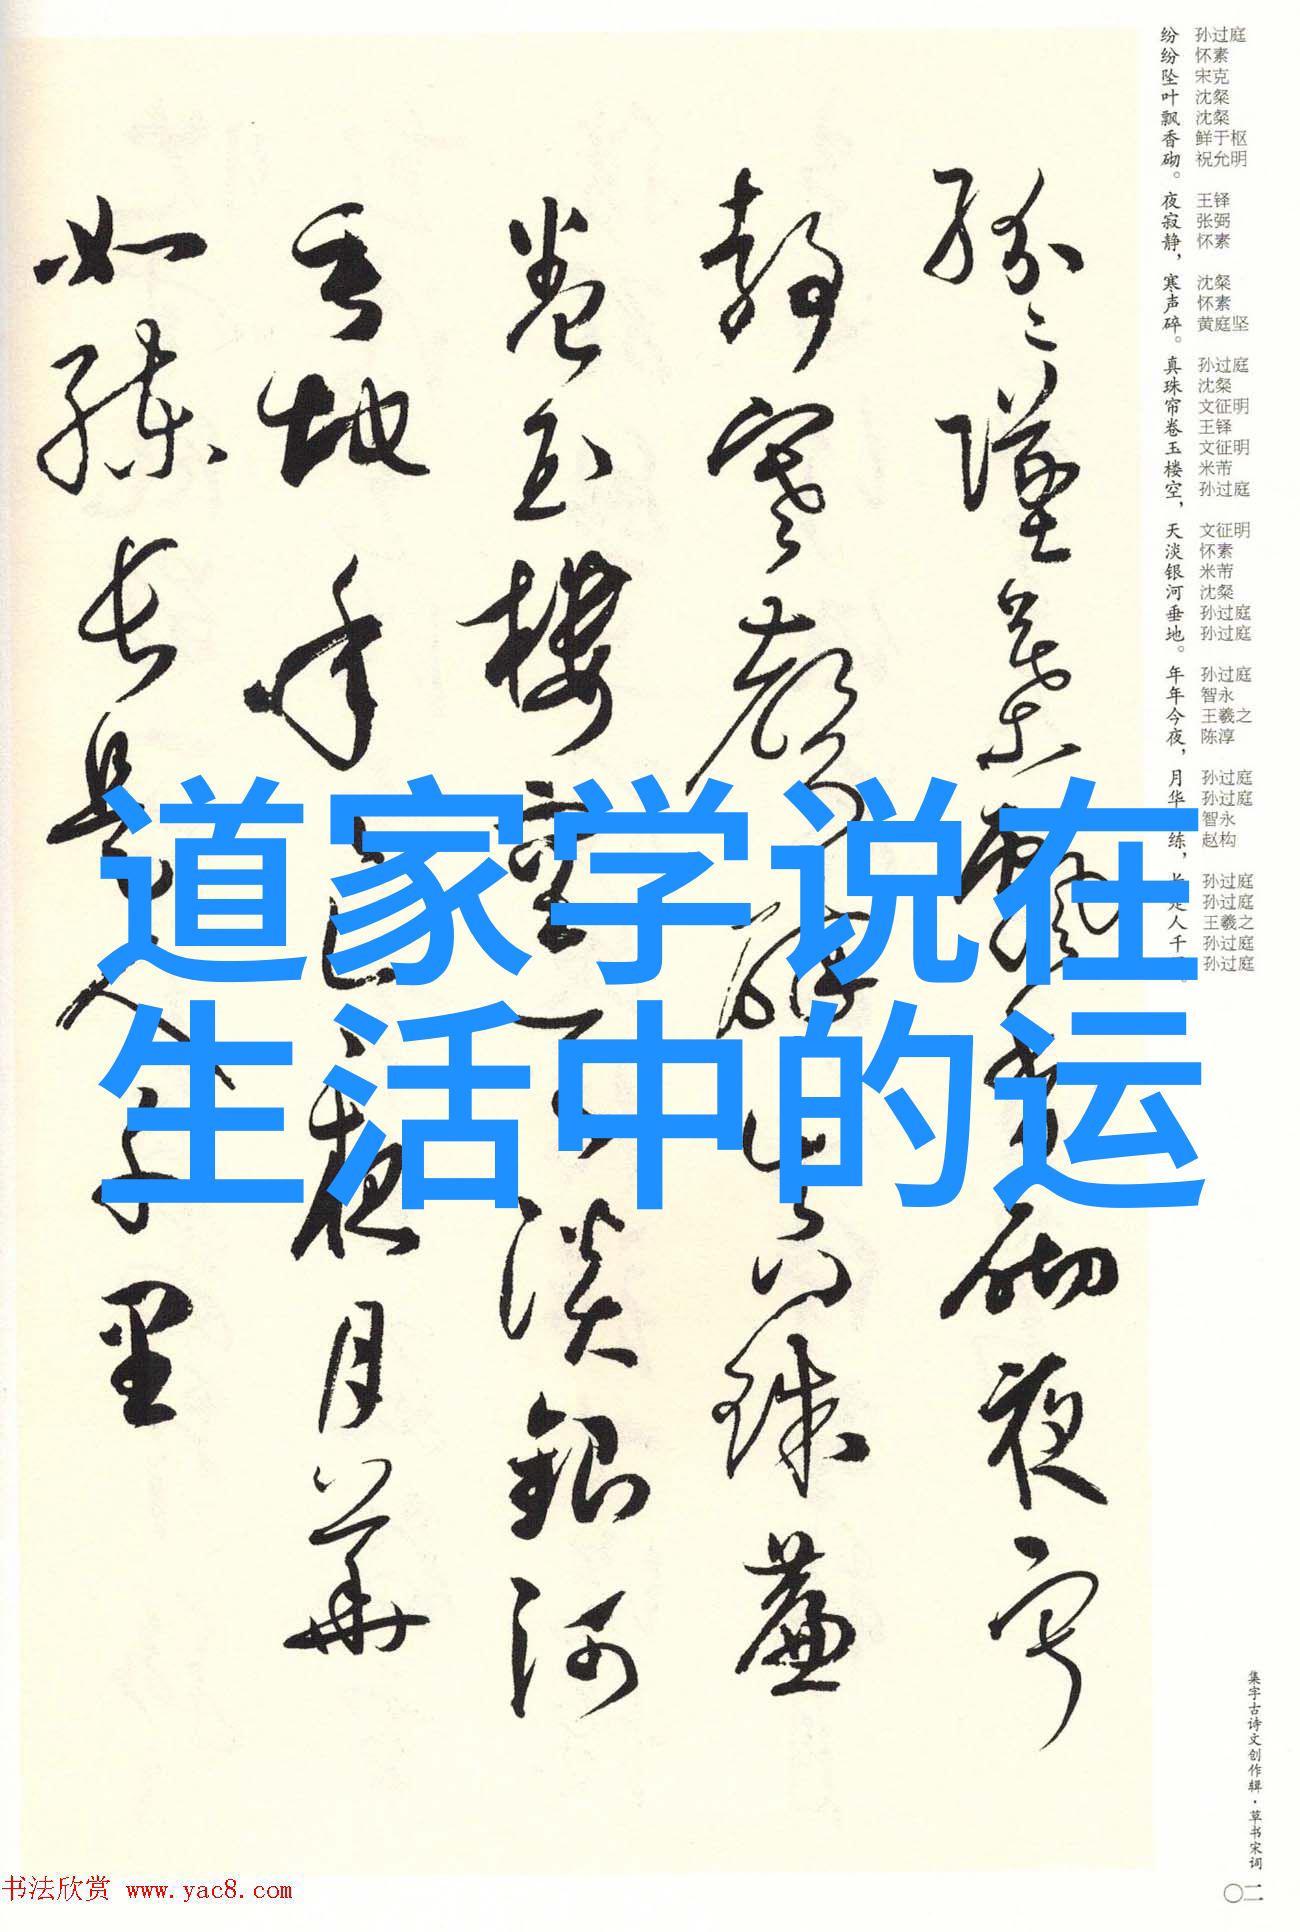 纷纷坠叶飘香砌。夜寂静，寒声碎。真珠帘卷玉楼空，天淡银河垂地。年年今夜，月华练，长是人千
孙过庭
怀素
宋克
沈粲
沈粲
鲜于枢
祝允明
王铎
张弼
怀素
沈粲
怀素
黄庭坚
孙过庭
沈粲
文征明
王铎
文征明
米芾
孙过庭
文征明
怀素
米芾
沈粲
孙过庭
孙过庭
孙过庭
智永
王羲之
陈淳
孙过庭
孙过庭
智永
赵构
孙过庭
孙过庭
王羲之
孙过庭
孙过庭
纷纷坠叶飘香砌夜寂
静寒声碎真珠帘
卷玉楼空天淡银河
垂地年年今夜月华
如练长是人千里
道家学说在
生活中的运
集字古诗文创作辑·草书宋词
〇二
书法欣赏 www.yac8.com